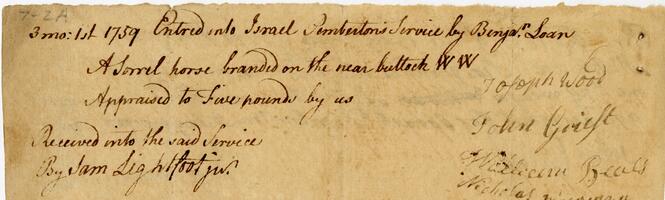 7-2A
3 mo: 1st 1759 Entred into Israel Pemberton's Service by Benja.n Loan
A Sorrel horse branded on the near buttock W W
Appraised to Five pounds by us
Joseph Wood
John Griest
Received into the said Service
By Sam Lightfoot jur.
William Beals
Nicholas